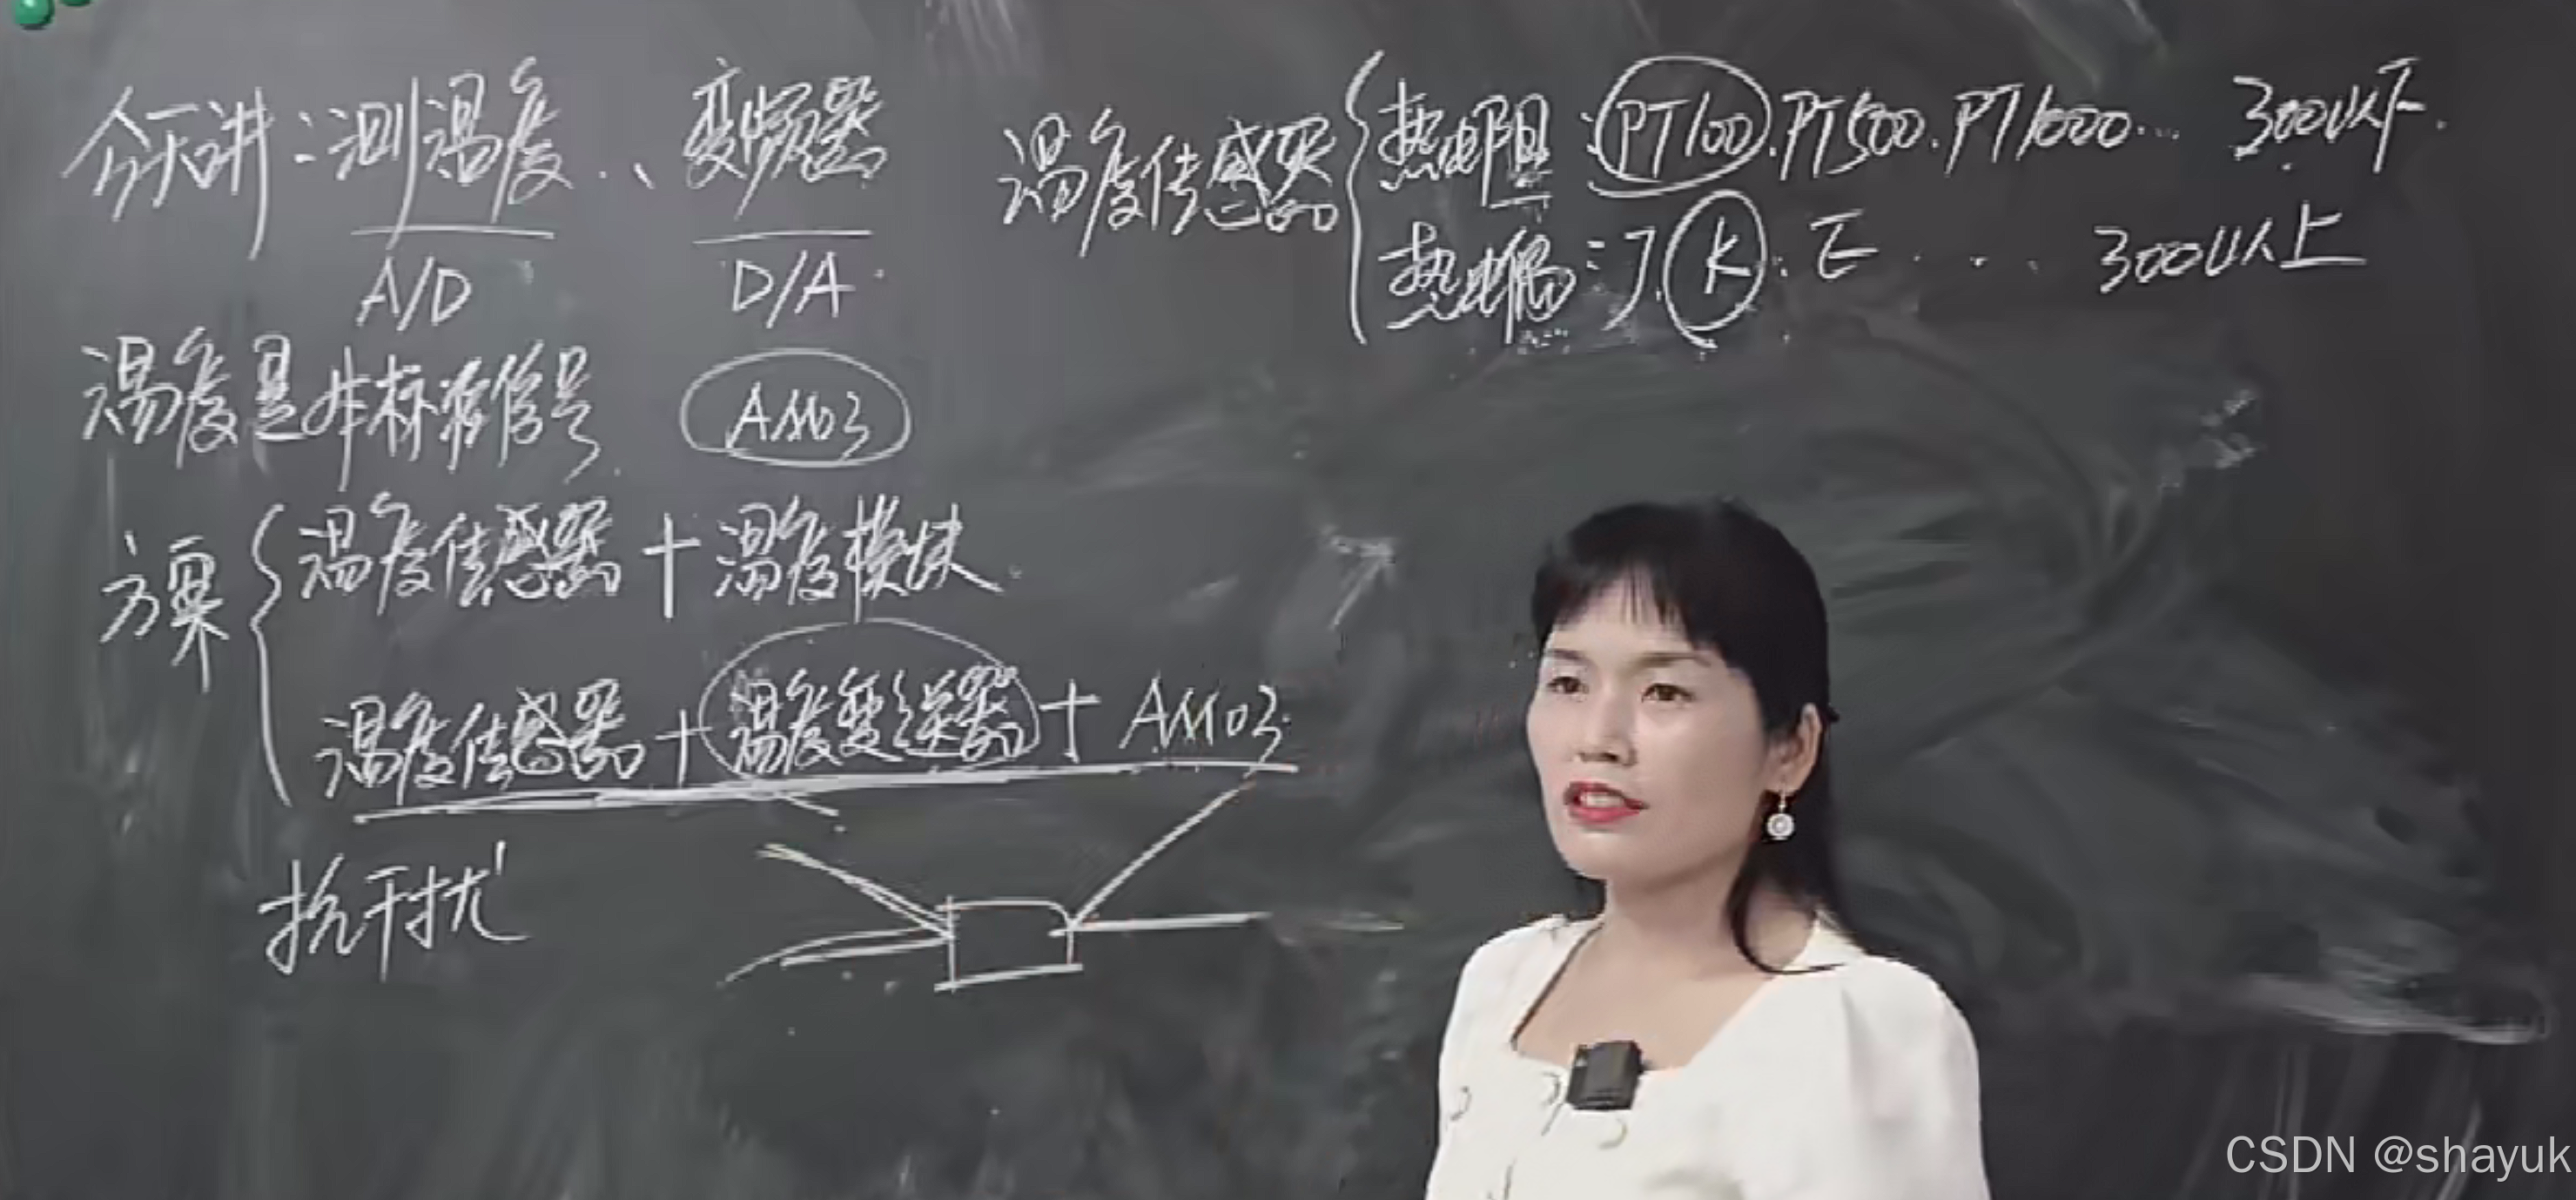 今天讲：测温度、变频器
A/D D/A
温度是非标准信号 AM03
方案
温度传感器+温度模块
温度传感器+温度变送器+AM03
抗干扰
温度传感器
热电阻：PT100.PT500.PT1000... 300以下.
热电偶：J.K.E... 300以上
CSDN @shayuk